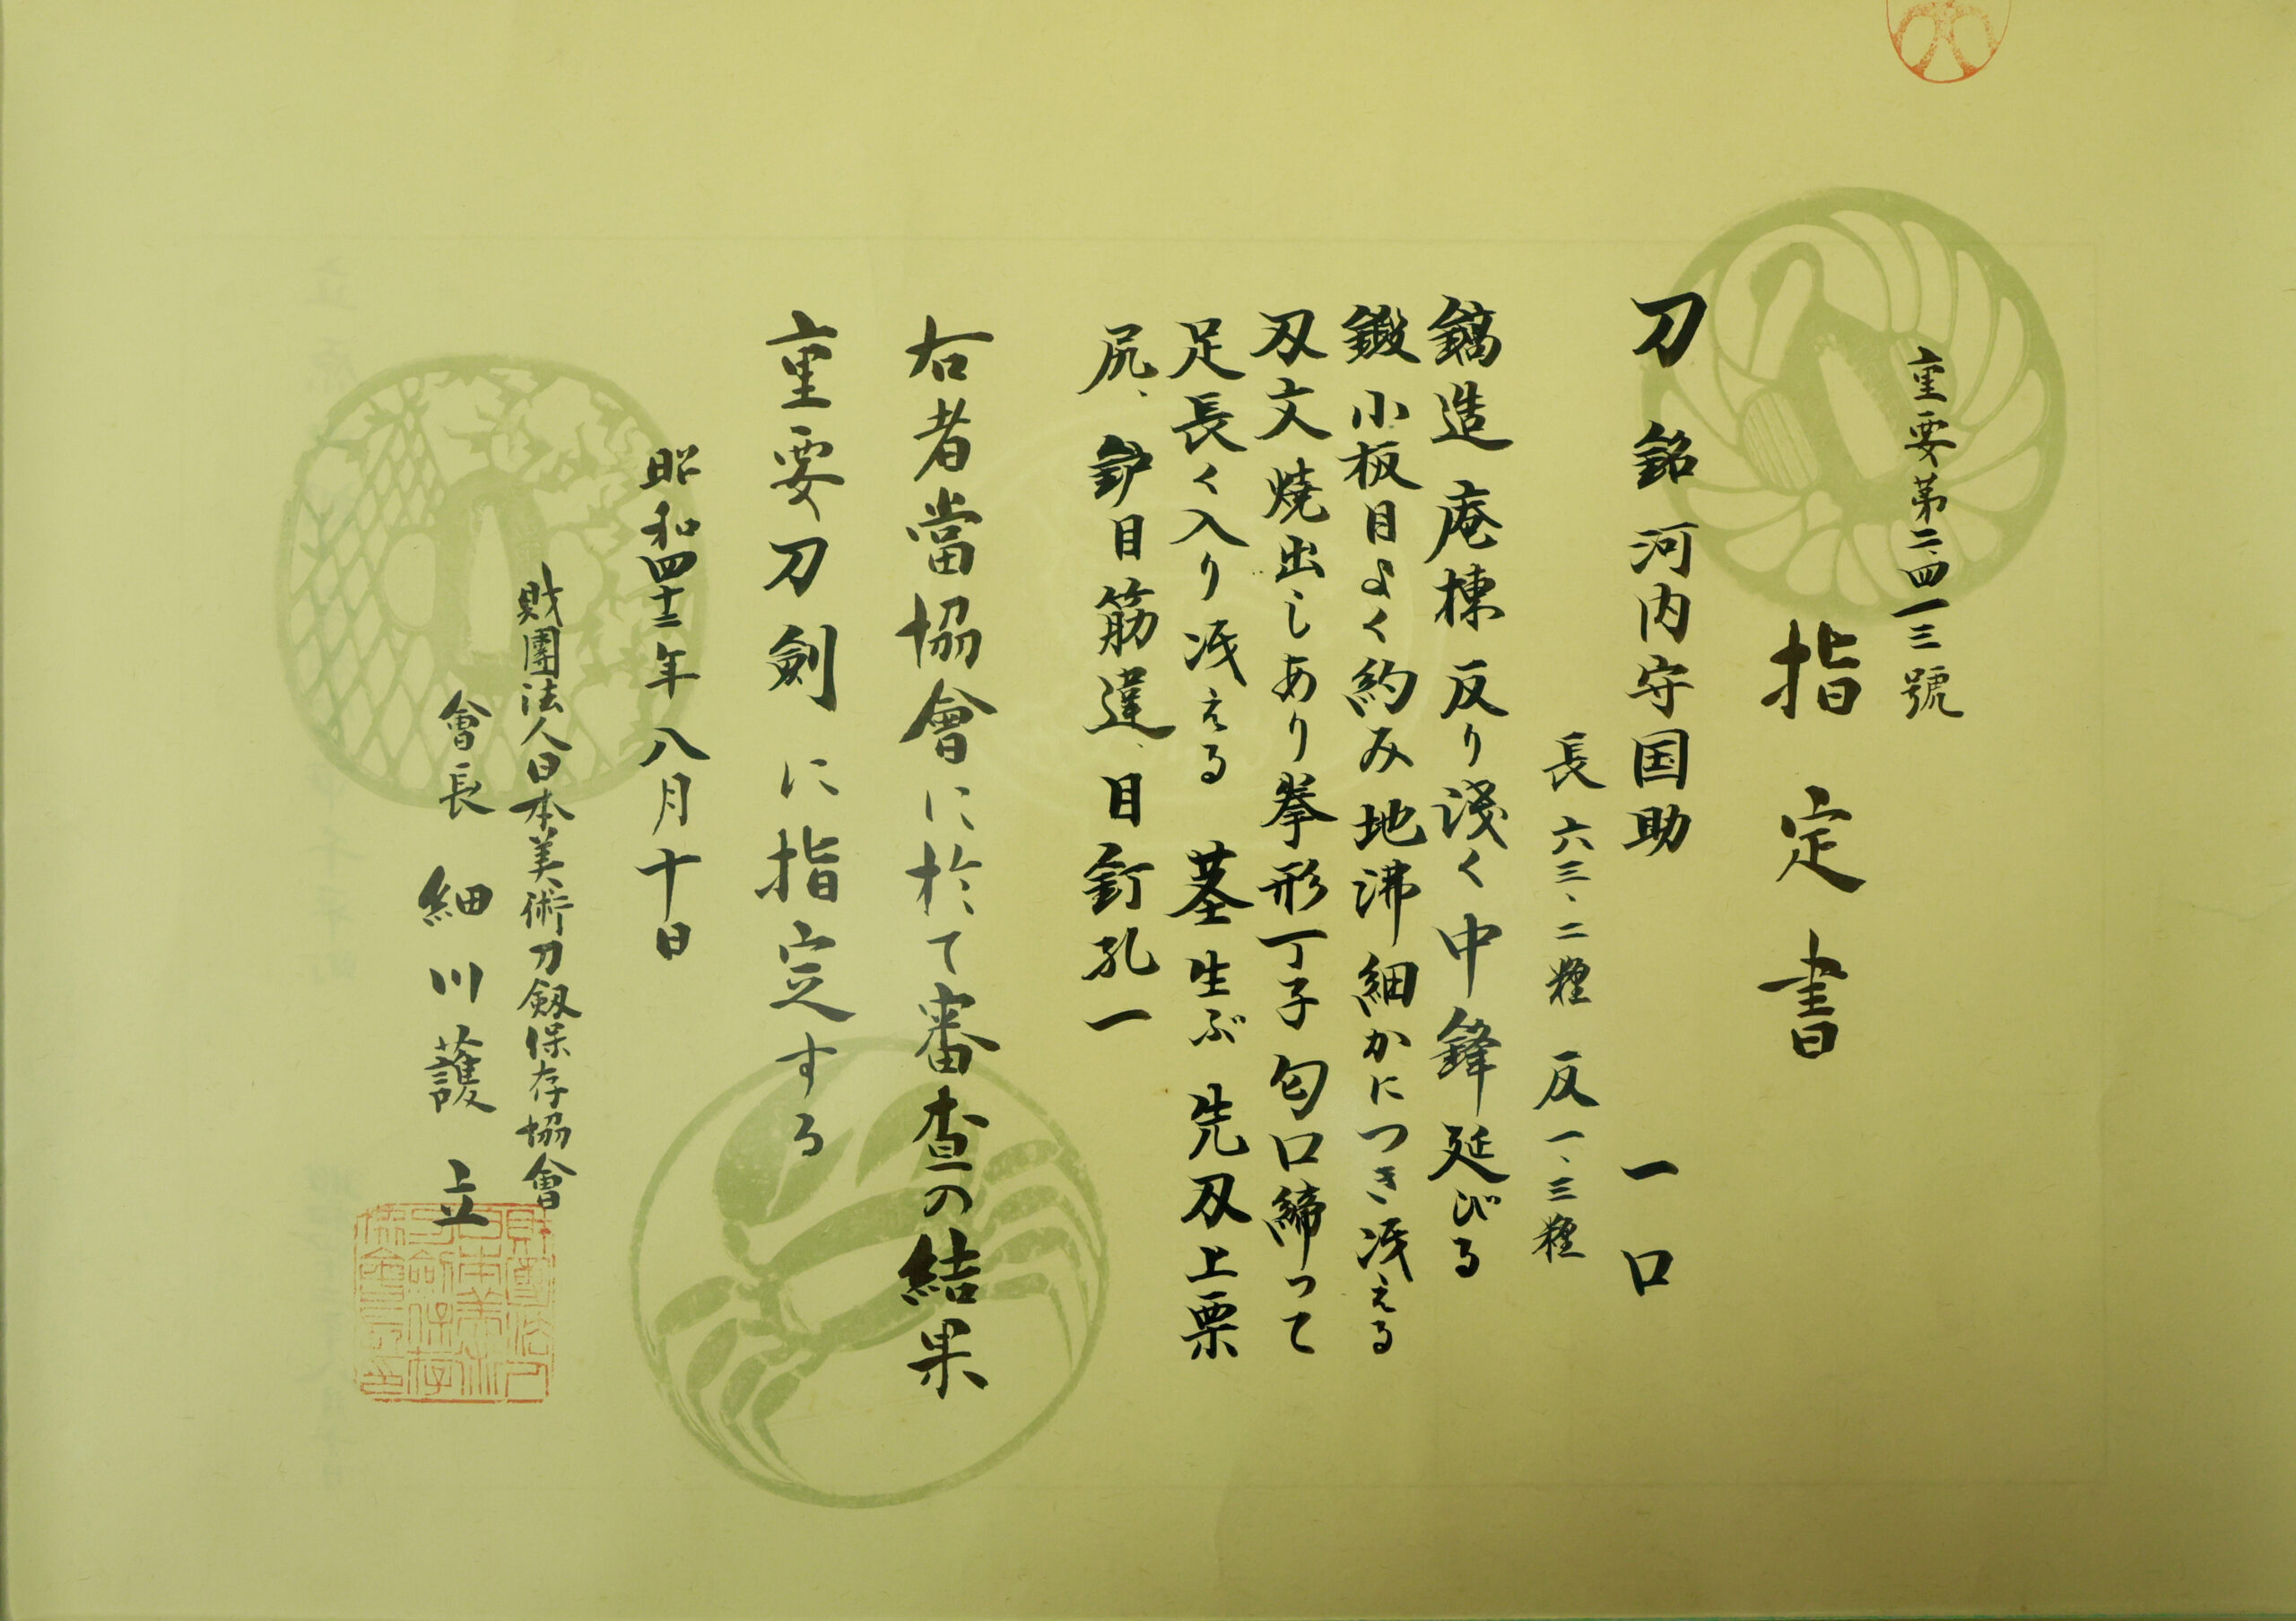 重要第二、四一三號
指定書
刀 銘 河内守国助 一口
長 六三、二糎 反 一、三糎
鎬造 庵棟 反り淺く 中鋒延びる
鍛 小板目よく約み 地沸細かにつき冴える
刃文 焼出しあり 拳形丁子 匂口締って
足長く入り 冴える 茎 生ぶ 先刃上栗
尻、鈩目筋違、目釘孔一
右者當協會に於て審査の結果
重要刀剣に指定する
昭和四十三年八月十日
財團法人日本美術刀剱保存協會
會長 細川護立